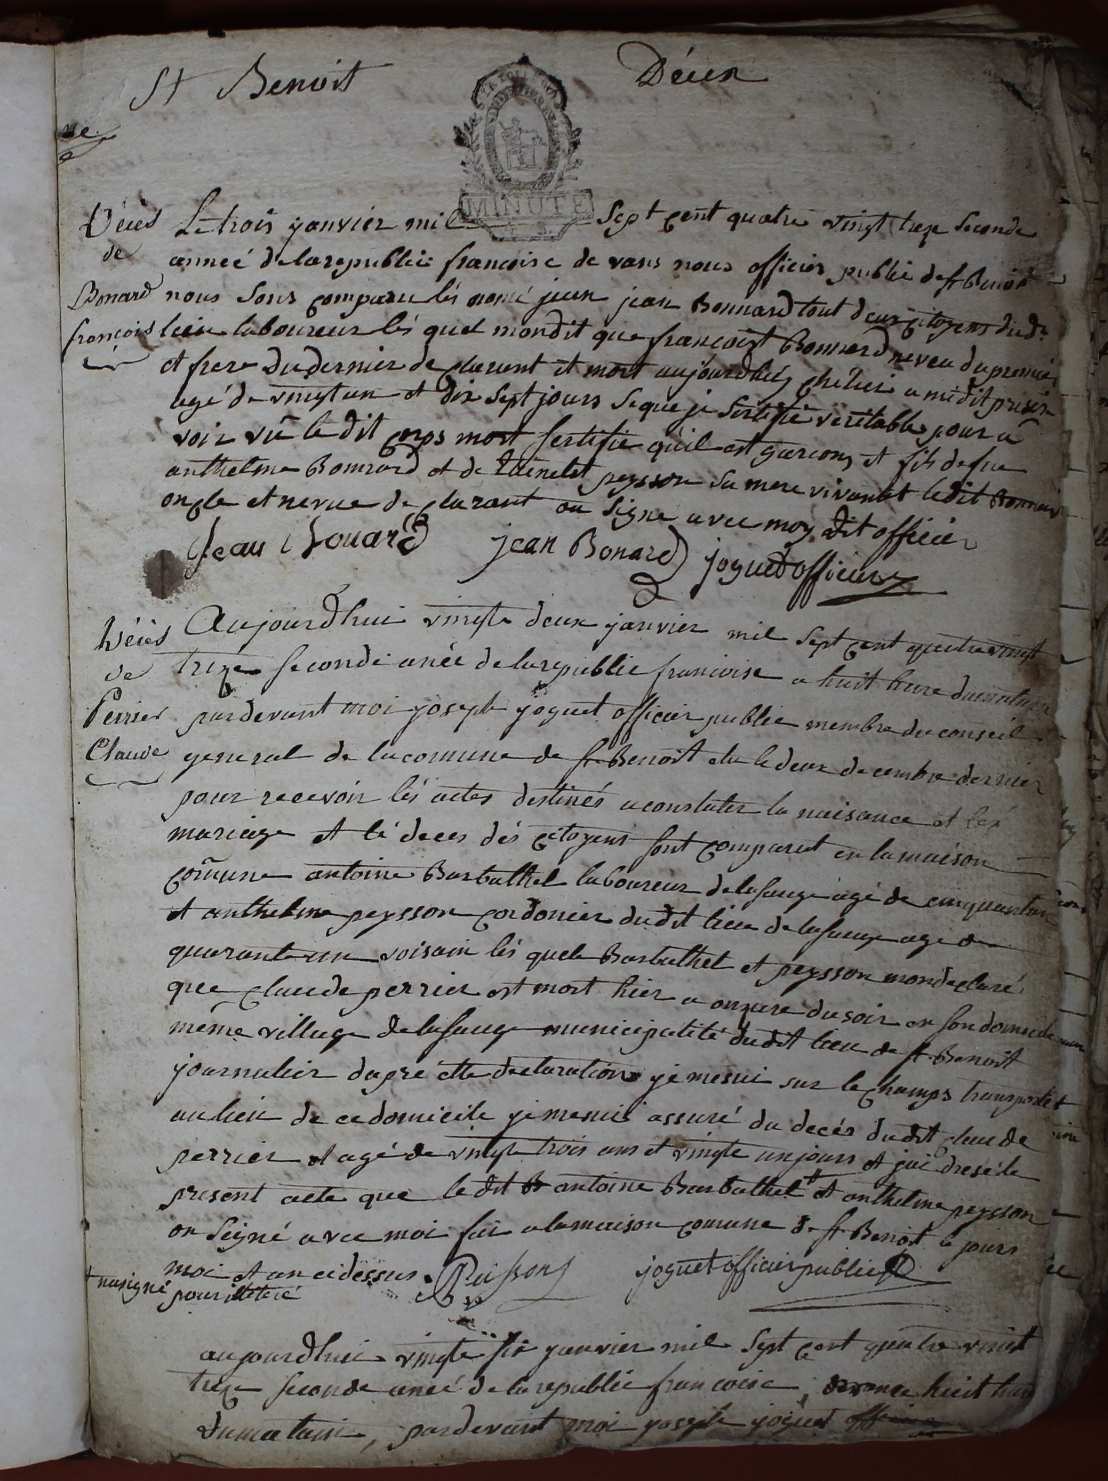 St Benoit Décès
MINUTE
Décès de Bonard françois
Le trois janvier mil sept cent quatre vingt treze seconde
anneé de la republic françoise de vans nous officier public de st Benoit
nous sons comparu lés nomé jean jean Bonnard tout deux citoyens du dt
lieu laboureur lés quel mondit que françois Bonnard neveu du premier
et frere du dernier declarent et mort aujourdhuy a midit
agé de vingt un et dix sept jours se que je sertifie veritable pour a
voir vu le dit corps mort sertifie quil est garcon et fils de fue
anthelme Bonnard et de peysson sa mere vivante ledit Bonnard
oncle et neveu declarant on signe avec moy dit officier
Jean Bonard jean Bonard joguet officier
Décès de Perrier Claude
Aujourdhui vingte deux janvier mil sept cent quatre vingt
treze seconde anée de la republic françoise a huit heure du matin
pardevant moi joseph joguet officier public membre du conseil
general de la comune de st Benoit elu le deux decembre dernier
pour recevoir lés actes destinés a constater la naisance et les
mariage et lé deces dés citoyens sont comparut en la maison
comune antoine Barbathel laboureur de lasauge agé de cinquante
et anthelme peysson cordonier du dit lieu de lasauge age de
quarante un voisain lés quels Barbathel et peysson mon declaré
que claude perrier est mort hier a onzure du soir en son domicile
même village de lasauge municipalité du dit lieu de st Benoit
journalier dapre cette declaration je me sui sur le champs transporté
au lieu de ce domicile je me sui assuré du decés du dit claude
perrier et agé de vingt trois ans et vingte un jours et jai dresé le
present acte que le dit antoine Barbathel + et anthelme peysson
on signé avec moi fai a la maison comune de st Benoit le jours
moi et an ci dessus Peissons joguet officier public
+ na signé pour
aujourdhui vingte six janvier mil sept cent quatre vint
treze seconde aneé de la republic françoise, huit heure
du matain, pardevant moi joseph joguet officier